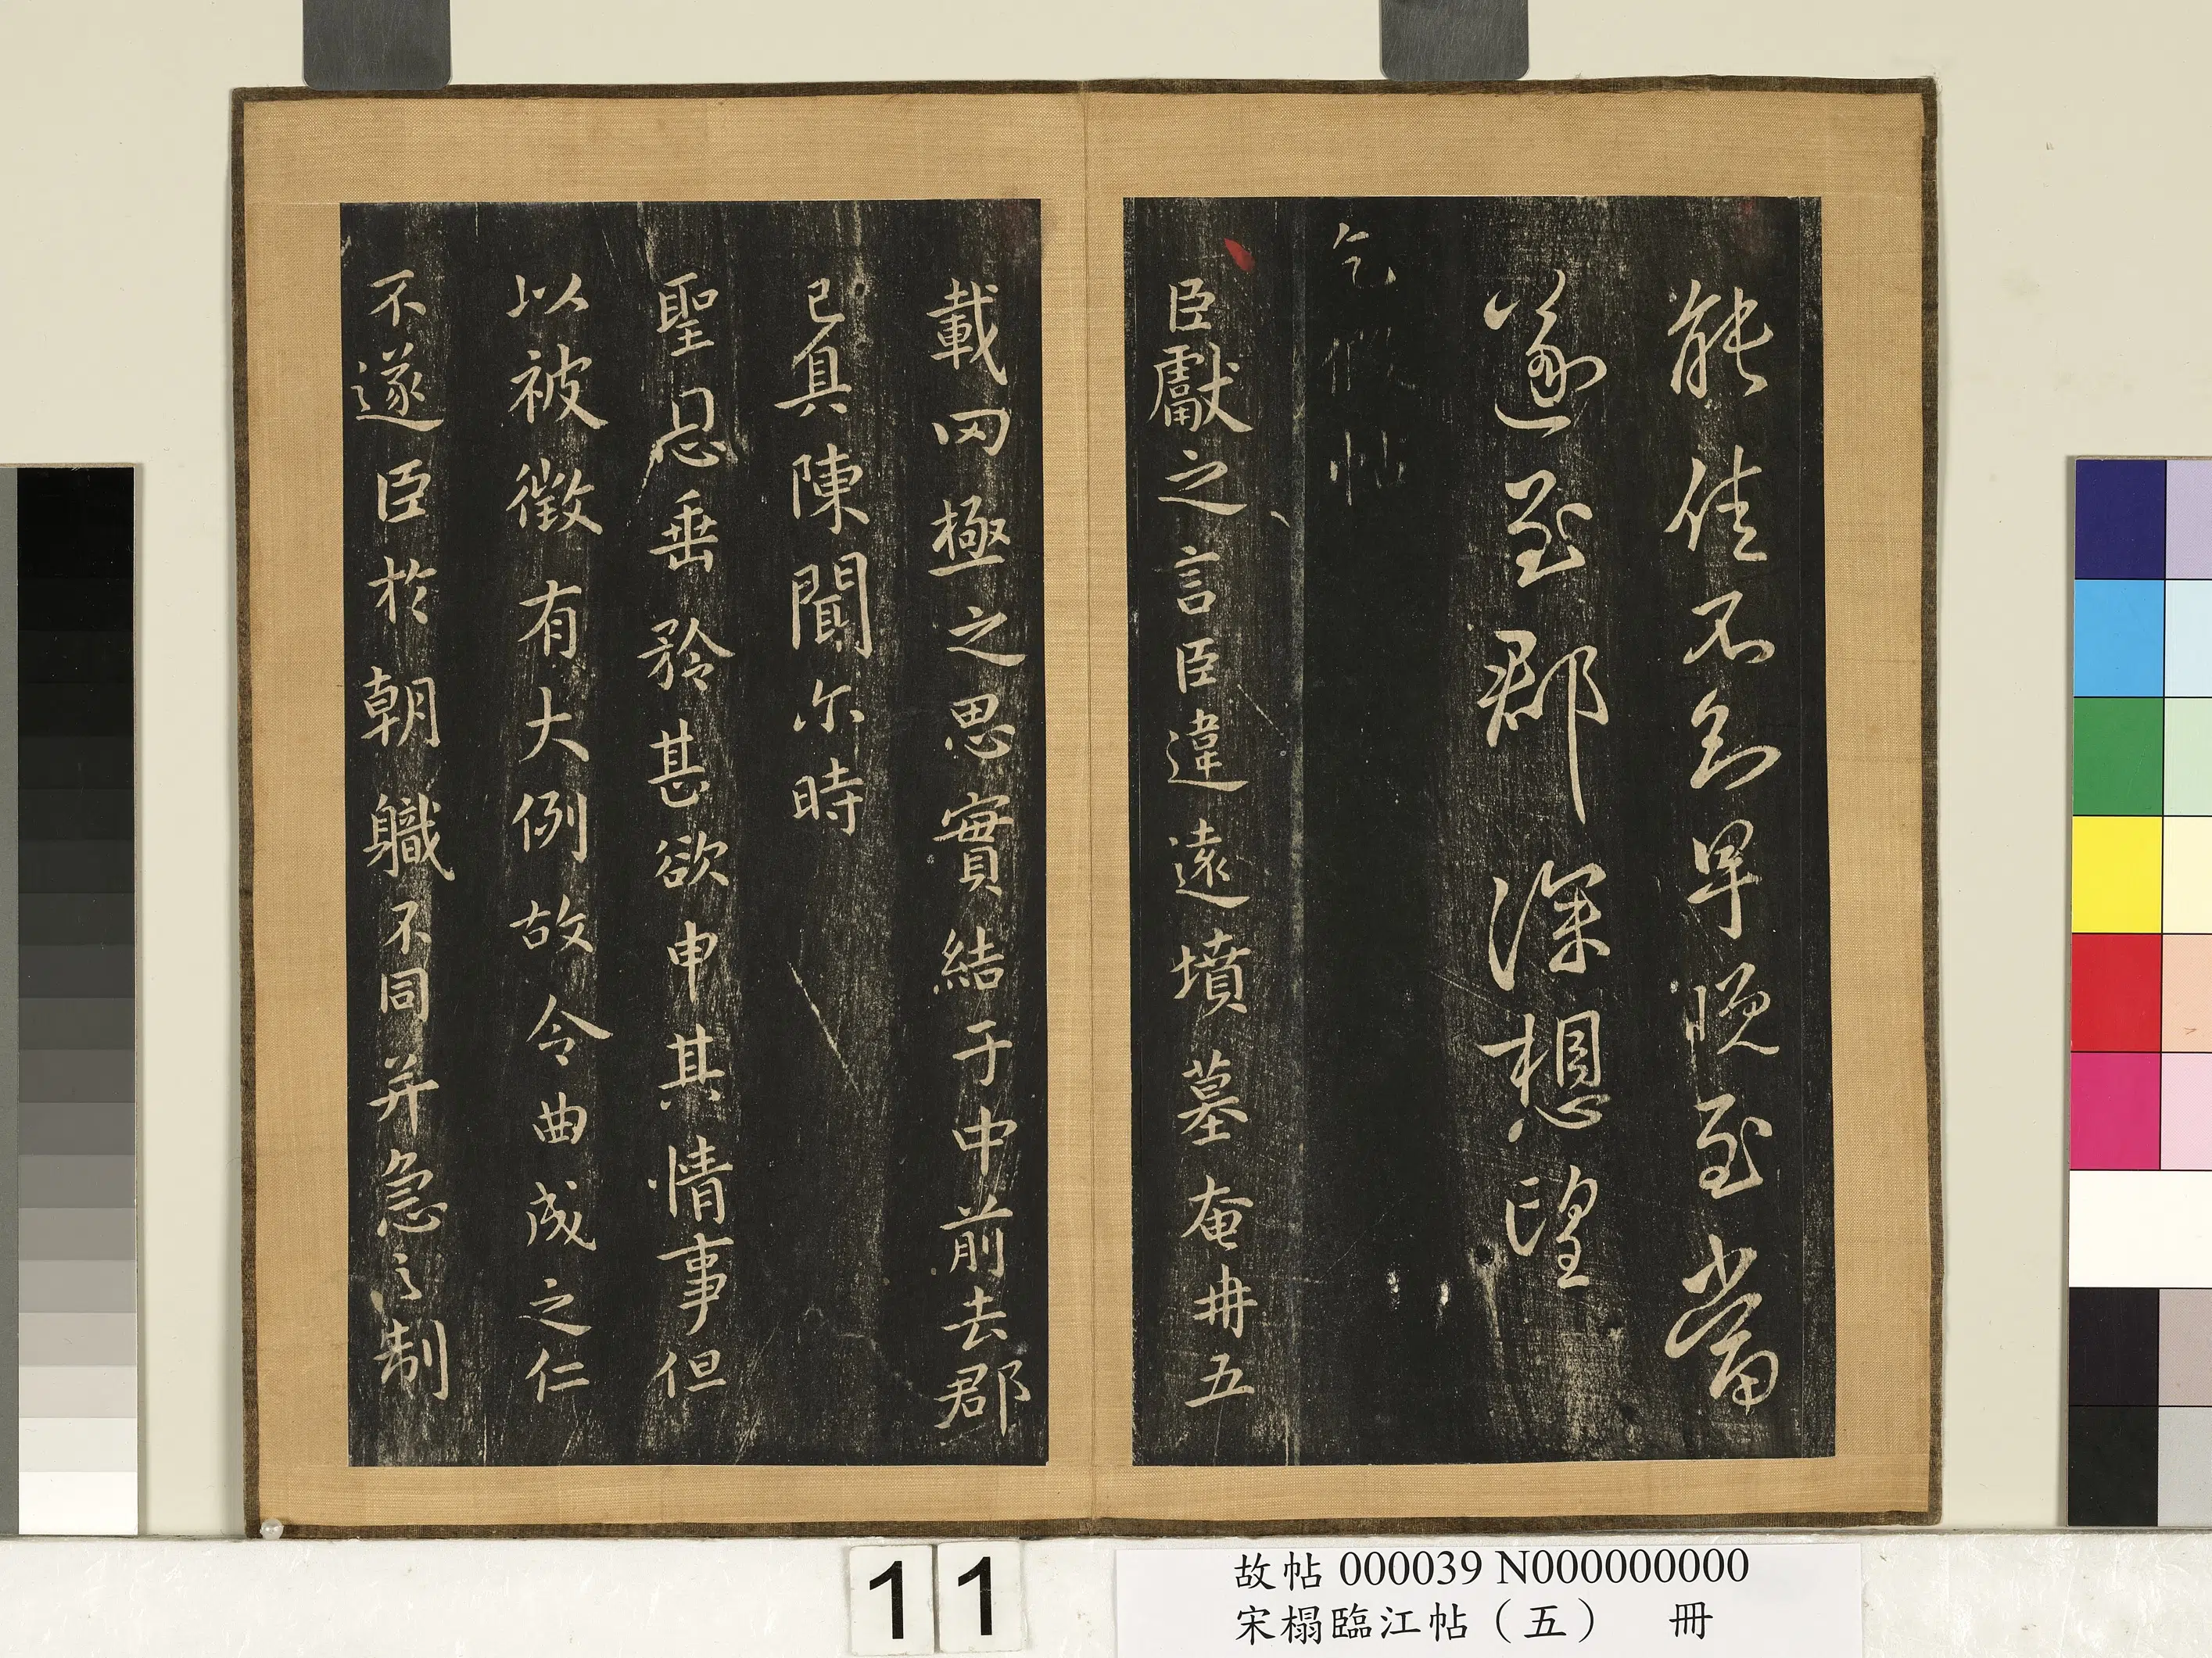 能佳不知早晚至當
遂至郡深想望
乞假帖
臣獻之言臣違遠墳墓奄冉五
載罔極之思實結于中前去郡
已具陳聞尔時
聖恩垂矜甚欲申其情事但
以被徵有大例故令曲成之仁
不遂臣於朝職不同並急之制
11
故帖 000039 N000000000
宋榻臨江帖（五） 冊